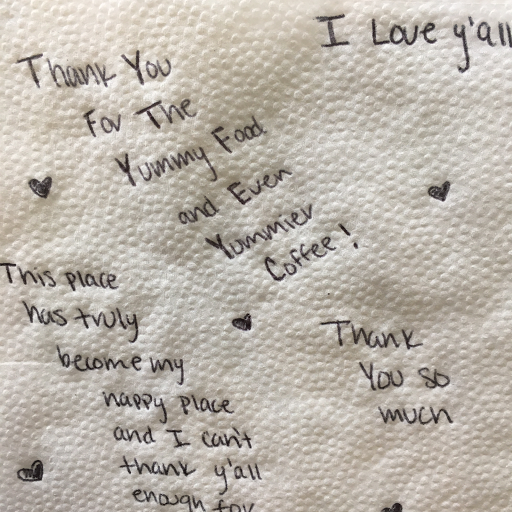 I Love y'all
Thank You
For The
Yummy Food
and Even
Yummier
Coffee!
This place
has truly
become my
happy place
and I can't
thank y'all
enough for
Thank
You so
much